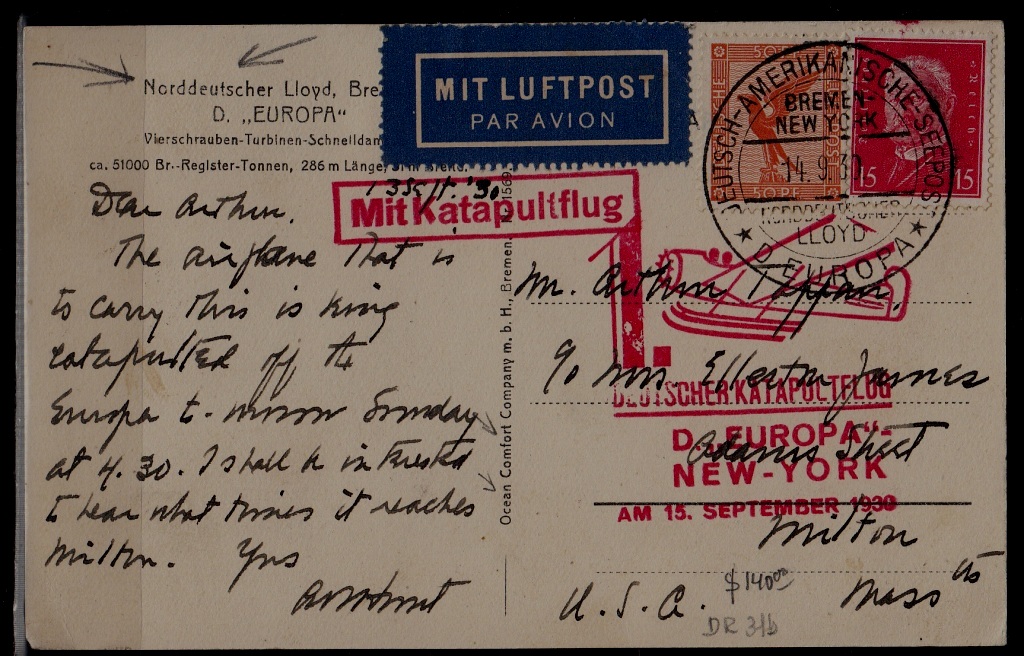 Norddeutscher Lloyd, Bre
D. „EUROPA“
Vierschrauben-Turbinen-Schnelldam
ca. 51000 Br.-Register-Tonnen, 286 m Länge,
MIT LUFTPOST
PAR AVION
Mit Katapultflug
Dear Arthur.
The airplane that is
to carry this is being
catapulted off the
Europa to-morrow Sunday
at 4.30. I shall be interested
to hear what time it reaches
Milton. Yrs
Ocean Comfort Company m. b. H., Bremen.
50 PF
15 15
DEUTSCH-AMERIKANISCHE-SEEPOST
BREMEN-
NEW YORK
14.9.30
NORDDEUTSCHER
LLOYD
★ D. EUROPA ★
1.
DEUTSCHER KATAPULTFLUG
D. „EUROPA“-
NEW-YORK
AM 15. SEPTEMBER 1930
Mr. Arthur
c/o Mrs. Ellerton James
Adams Street
Milton
Mass
U. S. A.
$140.00
DR 31b